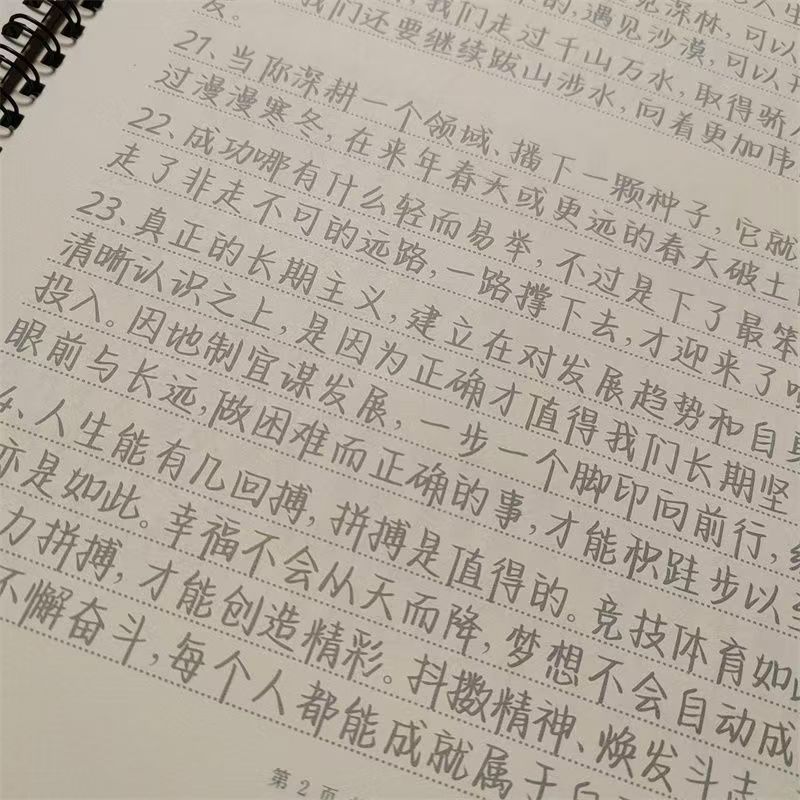 见深林,可以
我们走过千山万水,遇见沙漠,可以开
我们还要继续跋山涉水,向着更加伟
发。
21、当你深耕一个领域、播下一颗种子,它就
过漫漫寒冬,在来年春天或更远的春天破土
22、成功哪有什么轻而易举,不过是下了最笨
走了非走不可的远路,一路撑下去,才迎来了
23、真正的长期主义,建立在对发展趋势和自身
清晰认识之上,是因为正确才值得我们长期坚
投入。因地制宜谋发展,一步一个脚印向前行,
眼前与长远,做困难而正确的事,才能积跬步以至
4、人生能有几回搏,拼搏是值得的。竞技体育如此
亦是如此。幸福不会从天而降,梦想不会自动成
力拼搏,才能创造精彩。抖擞精神、焕发斗志
不懈奋斗,每个人都能成就属于自
第 2 页